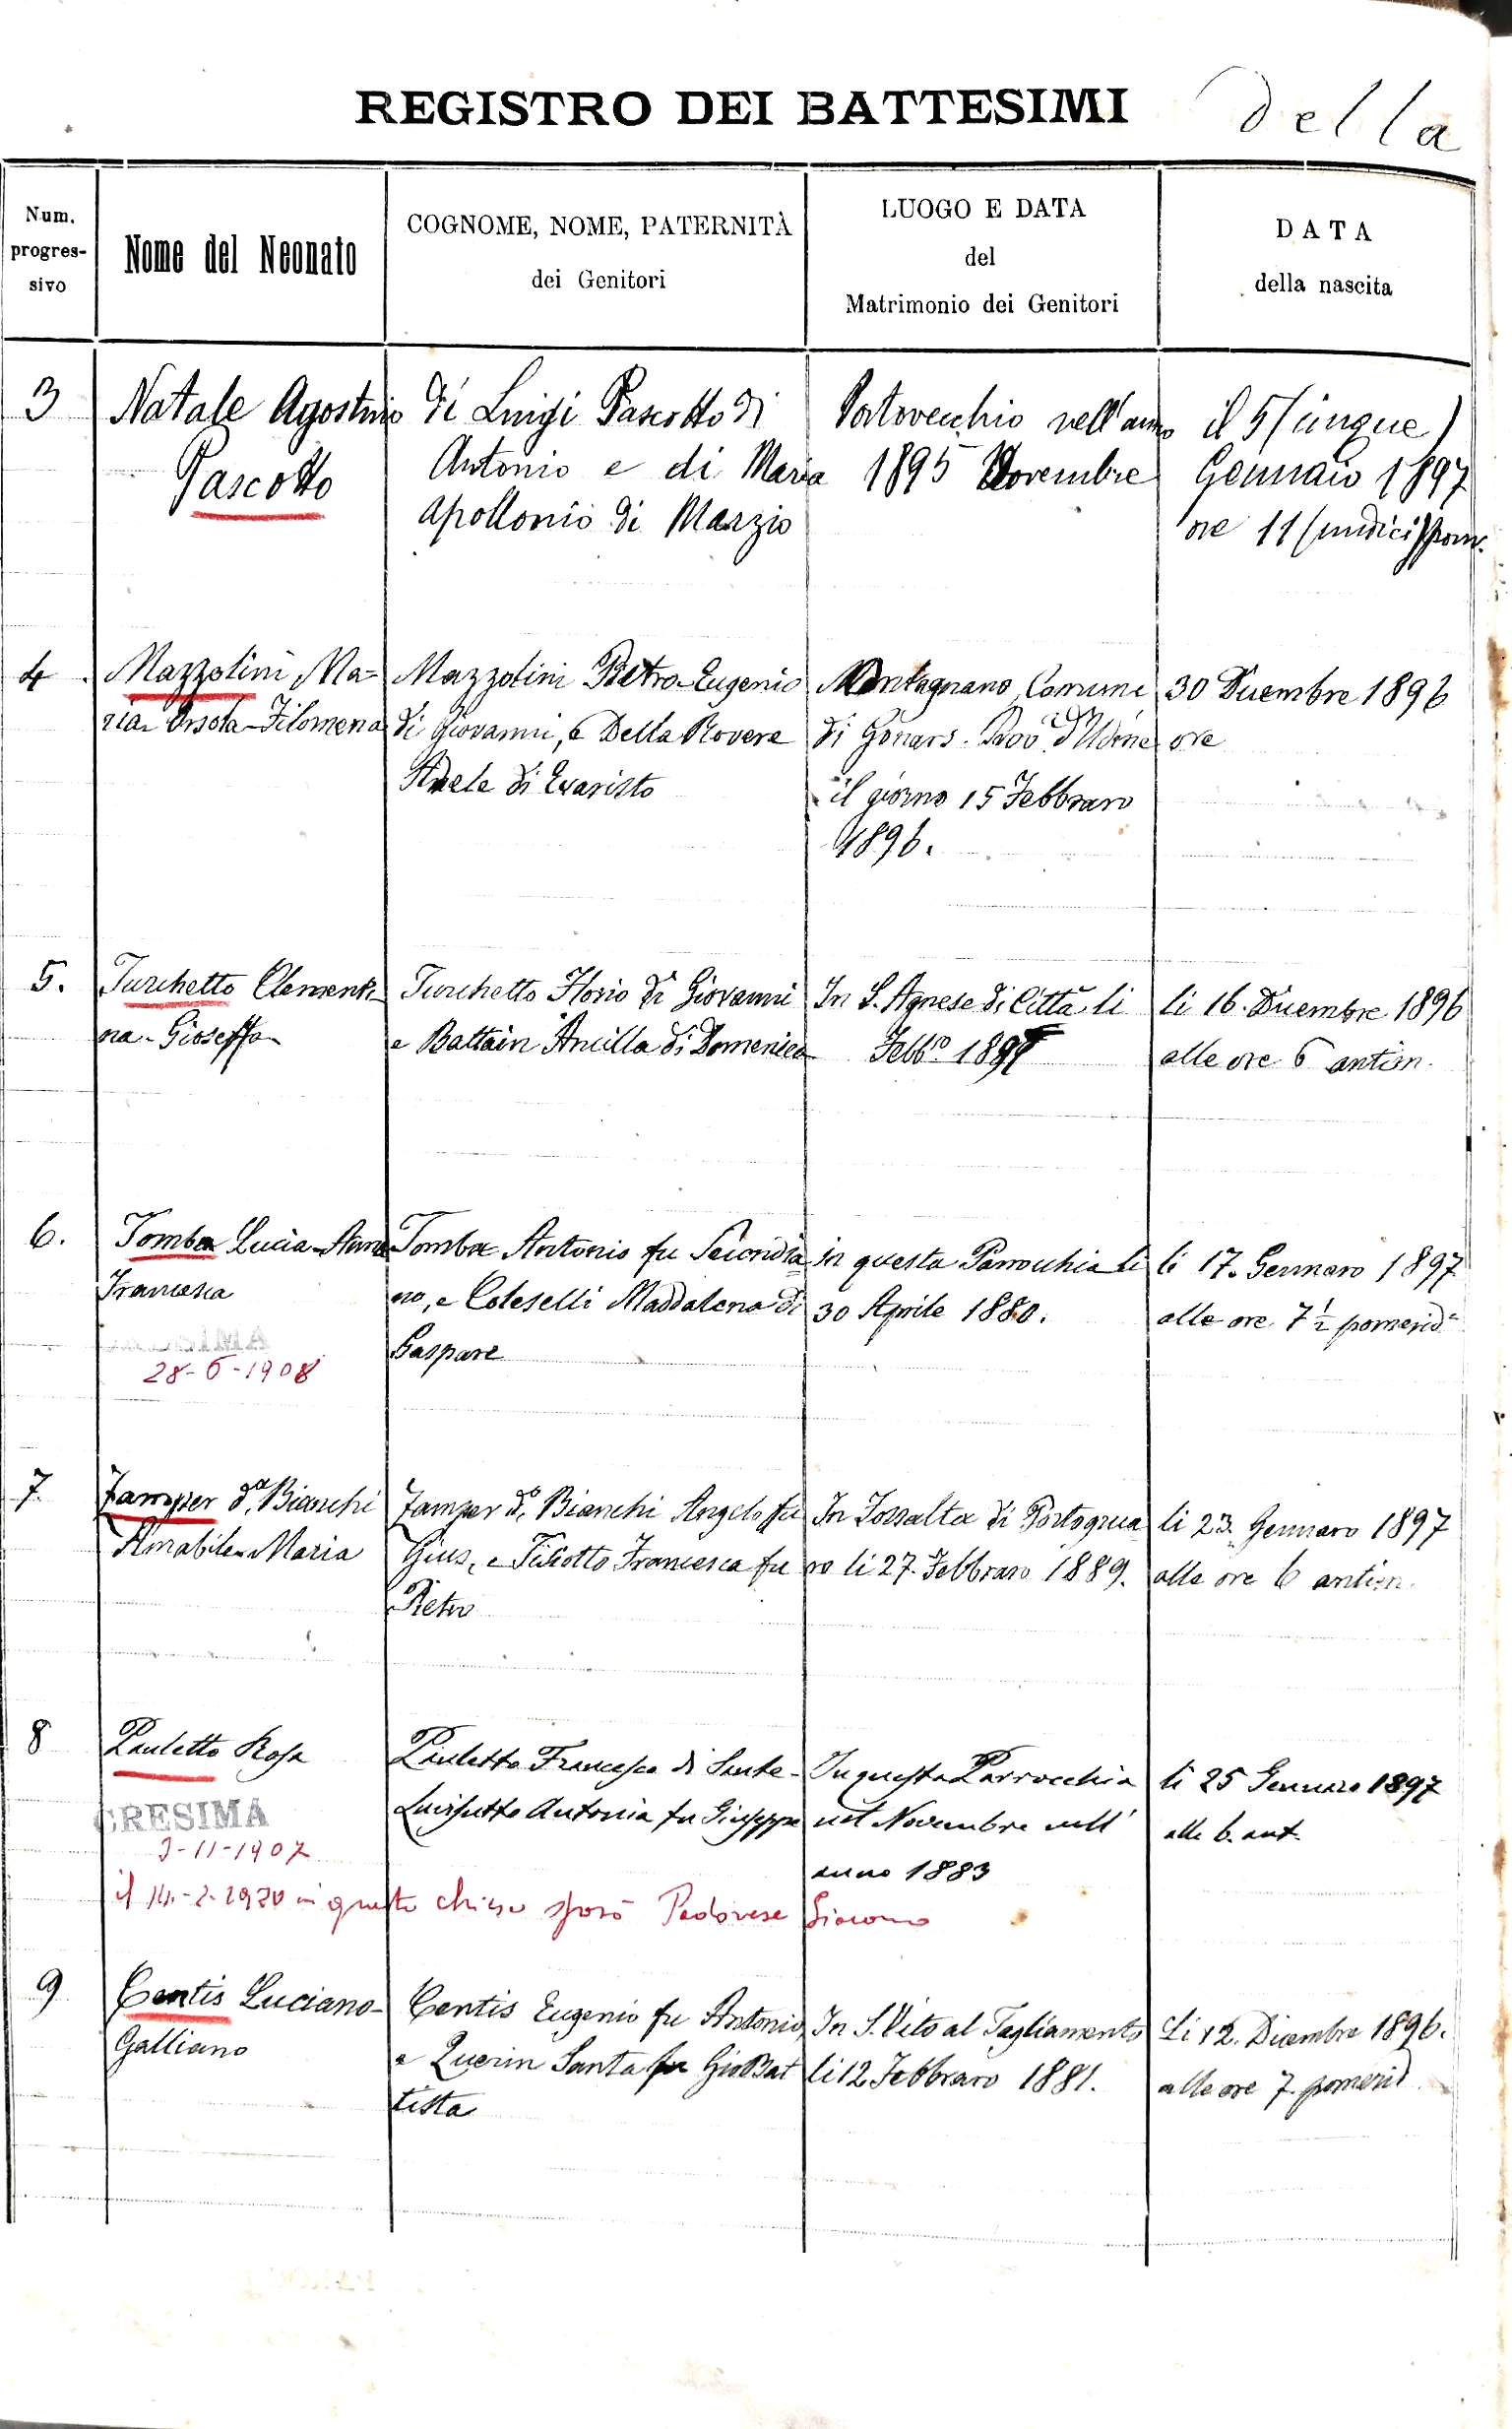 REGISTRO DEI BATTESIMI della
Num.
progres-
sivo
Nome del Neonato
COGNOME, NOME, PATERNITÀ
dei Genitori
LUOGO E DATA
del
Matrimonio dei Genitori
DATA
della nascita
3
Natale Agostino
Pascotto
di Luigi Pascotto di
Antonio e di Maria
Apollonio di Marzio
Portovecchio nell'anno
1895 Novembre
il 5 (cinque)
Gennaio 1897
ore 11 (undici) pom.
4
Mazzolini Ma=
ria-Orsola-Filomena
Mazzolini Pietro-Eugenio
di Giovanni, e Della Rovere
Adele di Evaristo
Montagnano Comune
di Gonars. Prov. d'Udine
il giorno 15 Febbraro
1896.
30 Dicembre 1896
ore
5.
Turchetto Clementi-
na-Gioseffa
Turchetto Florio di Giovanni
e Battain Ancilla di Domenico
In S. Agnese di Città li
Febbo 1897
li 16. Dicembre 1896
alle ore 6 antim.
6.
Tomba Lucia-Anna
Francesca
28-6-1908
Tomba Antonio fu Secondia
no, e Coleselli Maddalena di
Gaspare
in questa Parrochia li
30 Aprile 1880.
li 17. Gennaro 1897
alle ore 7 ½ pomerid.e
7.
Zamper do. Bianchi
Amabile-Maria
Zamper do. Bianchi Angelo fu
Gius, e Francesca fu
Pietro
In Fossalta di Portogrua
ro li 27. Febbraro 1889.
li 23. Gennaro 1897
alle ore 6 antim.
8
Pauletto Rosa
CRESIMA
3-11-1907
Pauletto Francesco di Sante-
Antonia fu Giuseppe
In questa Parrocchia
nel Novembre nell'
anno 1883
li 25 Gennaro 1897
alle 6. ant.
il 14-2-1920 in questa chiesa sposò Padovese Giacomo
9
Centis Luciano-
Galliano
Centis Eugenio fu Antonio
e Querin Santa fu GioBat
tista
In S. Vito al Tagliamento
li 12 Febbraro 1881.
Li 12. Dicembre 1896.
alle ore 7. pomerid